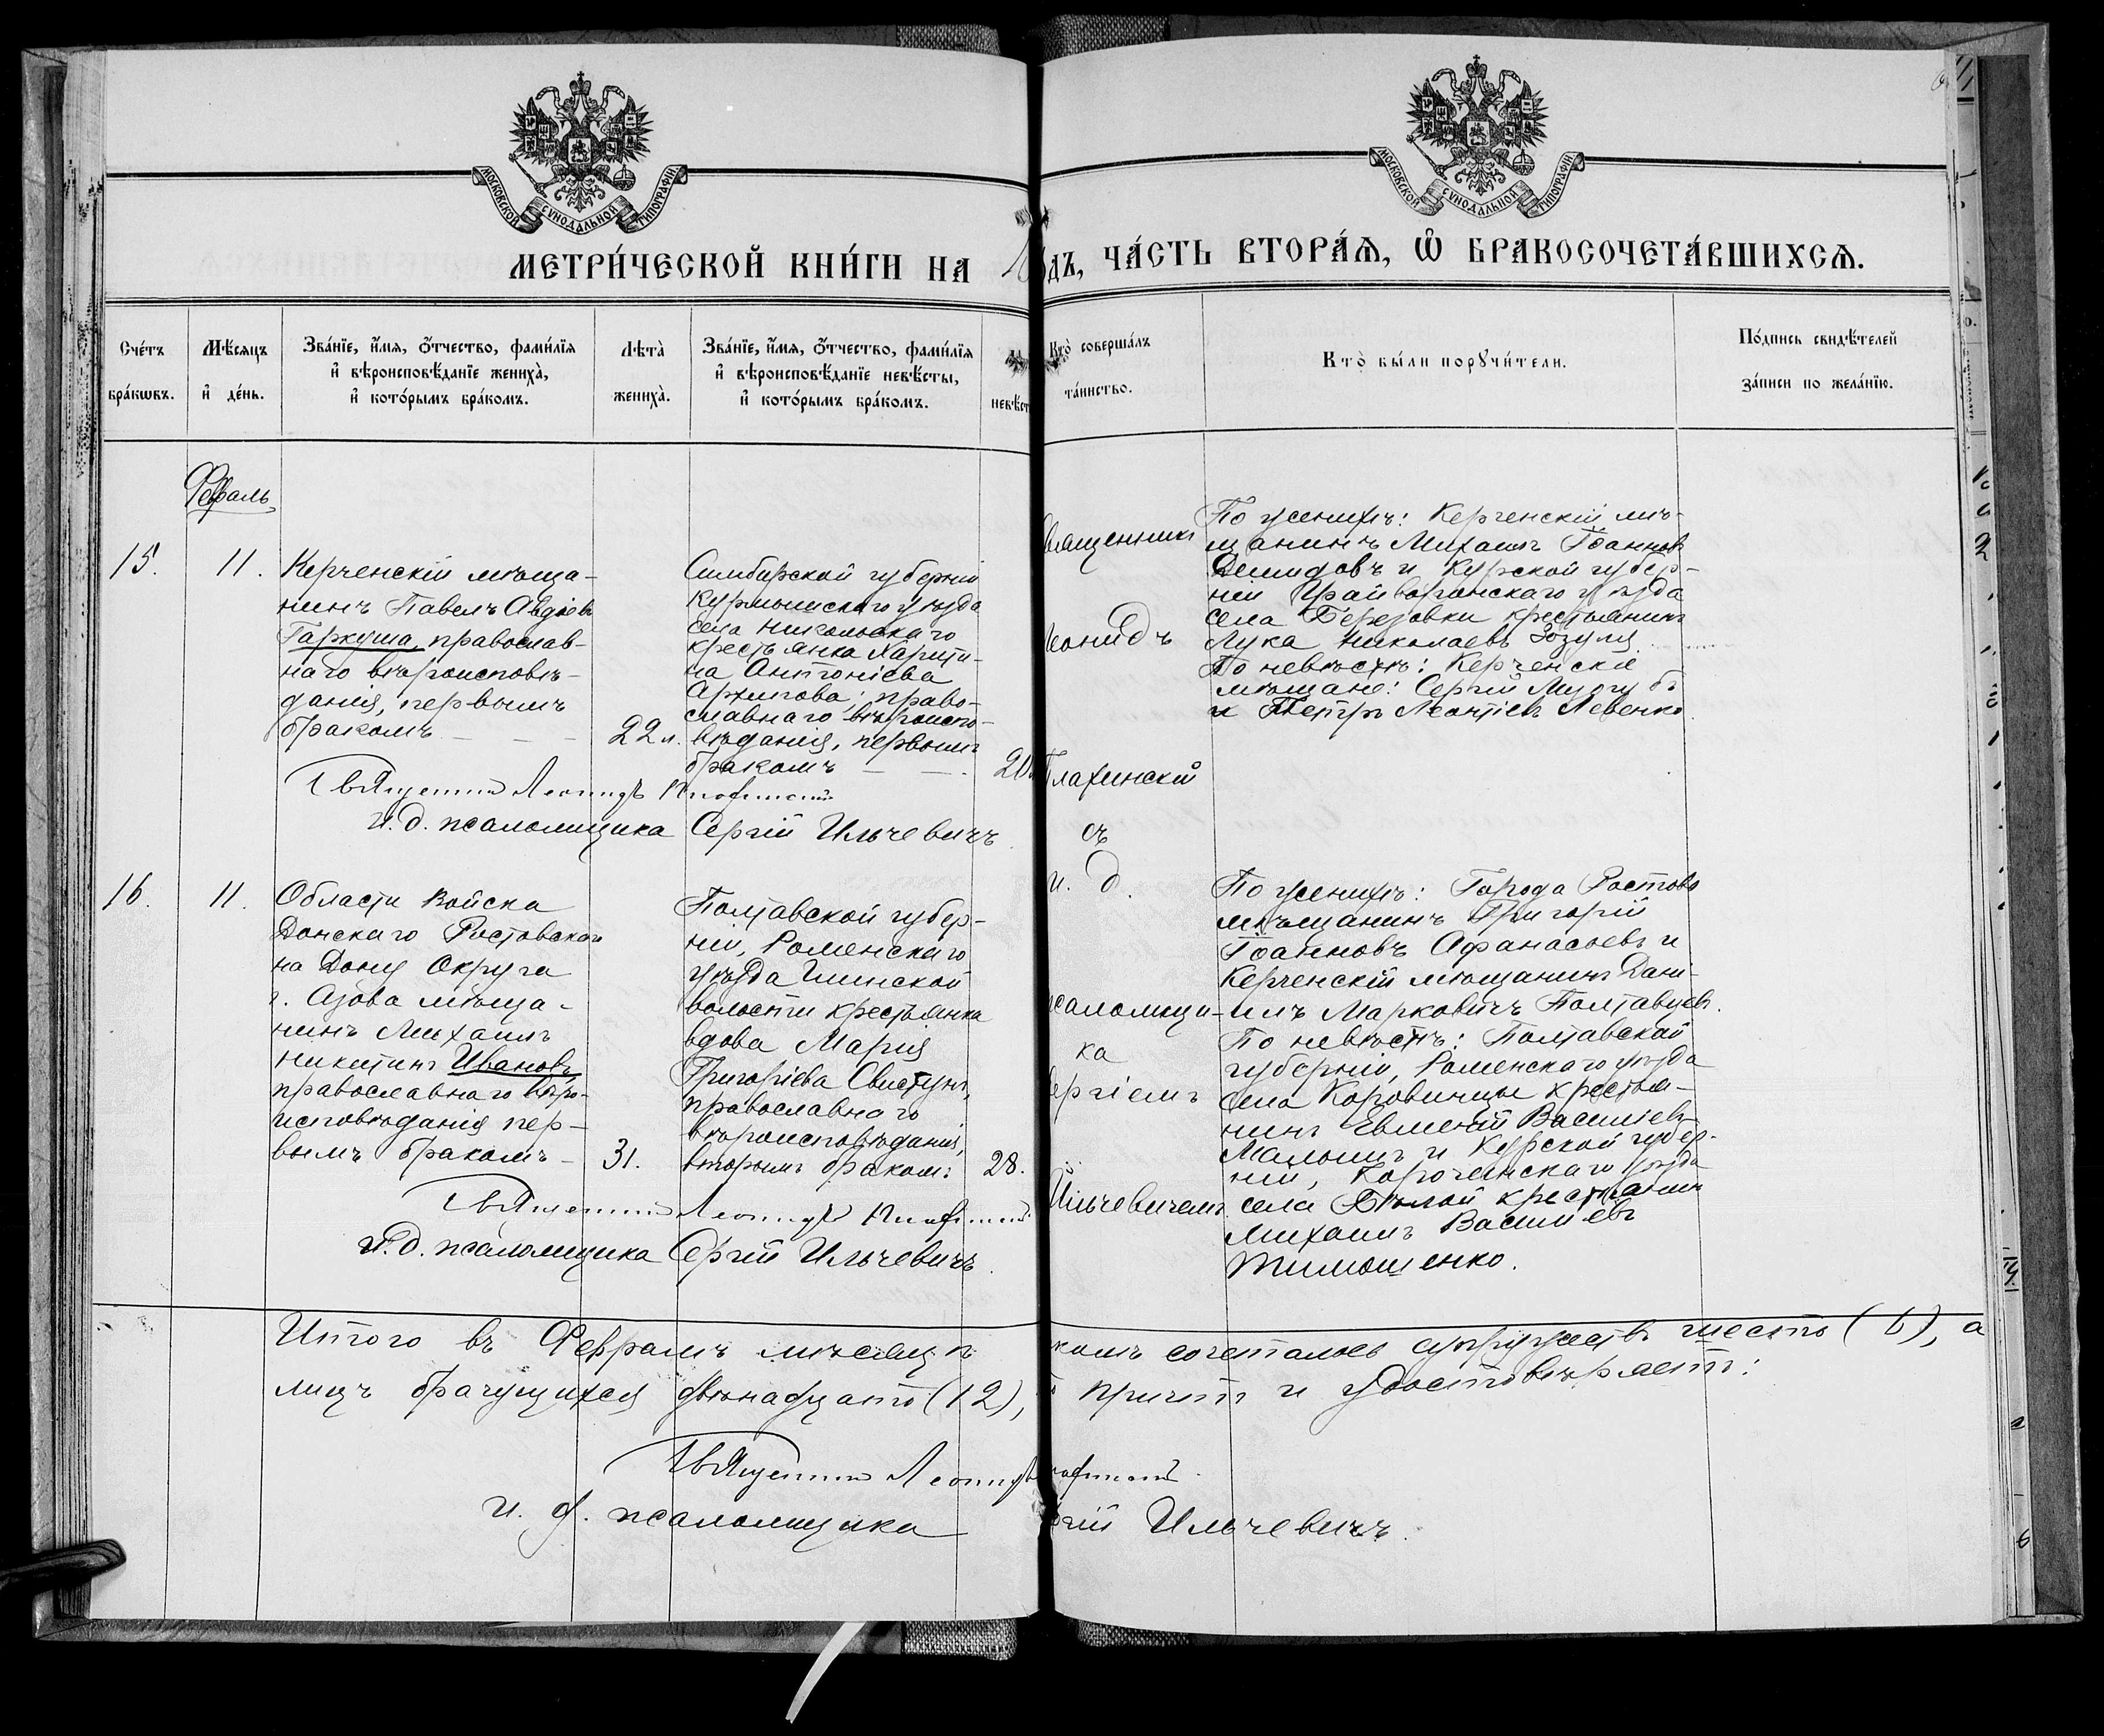 МОСКОВСКОЙ СУНОДАЛЬНОЙ ТИПОГРАФІИ
МОСКОВСКОЙ СУНОДАЛЬНОЙ ТИПОГРАФІИ
МЕТРИ́ЧЕСКОЙ КНИ́ГИ НА
ДЪ, ЧА́СТЬ ВТОРА́Ѧ, Ѿ БРАКОСОЧЕТА́ВШИХСѦ.
Сче́тъ бра́кѡвъ.
Мѣ́сяцъ и҆ де́нь.
Зва́нїе, и҆́мя, ѻ҆́тчество, фами́лїя
и҆ вѣроисповѣ́данїе жениха̀,
и҆ кото́рымъ бра́комъ.
Лѣта̀ жениха̀.
Зва́нїе, и҆́мя, ѻ҆́тчество, фами́лїя
и҆ вѣроисповѣ́данїе невѣ́сты,
и҆ кото́рымъ бра́комъ.
невѣст
Кто̀ соверша́лъ
та́инство.
Кто̀ бы́ли порꙋчи́тели.
По́дпись свидѣ́телей
за́писи по жела́нїю.
Февраль
15.
11.
Керченскій мѣща-
нинъ Павелъ Авдіевъ
Гаркуша, православ-
наго вѣроисповѣ-
данія, первымъ
бракомъ
22 л.
Симбирской губерніи
Курмышскаго уѣзда
села Никольскаго
крестьянка Харити-
на Антоніева
Архипова, право-
славнаго вѣроиспо-
вѣданія, первымъ
бракомъ
20
Священникъ Леонидъ
И. д. псаломщика Сергій Ильчевичъ
вященникъ
Леонидъ
Плахинскій
съ
и. д.
псаломщи-
ка
ергіемъ
Ильчевичемъ
По женихѣ: Керченскій мѣ-
щанинъ Михаилъ Іоанновъ
Демидовъ и Курской губер-
ніи Грайворонскаго уѣзда
села Березовки крестьянинъ
Лука Николаевъ Зозуля
По невѣстѣ: Керченскіе
мѣщане: Сергій
и Петръ Леонтіевъ Левенко
16.
11.
Области Войска
Донскаго Ростовскаго
на Дону Округа
г. Азова мѣща-
нинъ Михаилъ
Никитинъ Ивановъ,
православнаго вѣро-
исповѣданія, пер-
вымъ бракомъ
31.
Полтавской губер-
ніи, Роменскаго
уѣзда Глинской
волости крестьянка
вдова Марія
Григоріева Свистунъ,
православнаго
вѣроисповѣданія,
вторымъ бракомъ
28.
По женихѣ: Города Ростова
мѣщанинъ Григорій
Іоанновъ Афанасьевъ и
Керченскій мѣщанинъ Дані-
илъ Марковичъ Полтавцевъ.
По невѣстѣ: Полтавской
губерніи, Роменскаго уѣзда
села Коровинцы крестья-
нинъ Евменій Васильевъ
и Курской губер-
ніи, Корочанскаго уѣзда
села Бѣлой крестьянинъ
Михаилъ Васильевъ
Тимошенко.
Священникъ Леонидъ
И. д. псаломщика Сергій Ильчевичъ.
Итого въ Февралѣ мѣсяцѣ
комъ сочеталось супружествъ шесть (6), а
лицъ брачущихся двѣнадцать (12),
причтъ и удостовѣряетъ:
Священникъ Леонидъ
И. д. псаломщика
ргій Ильчевичъ.